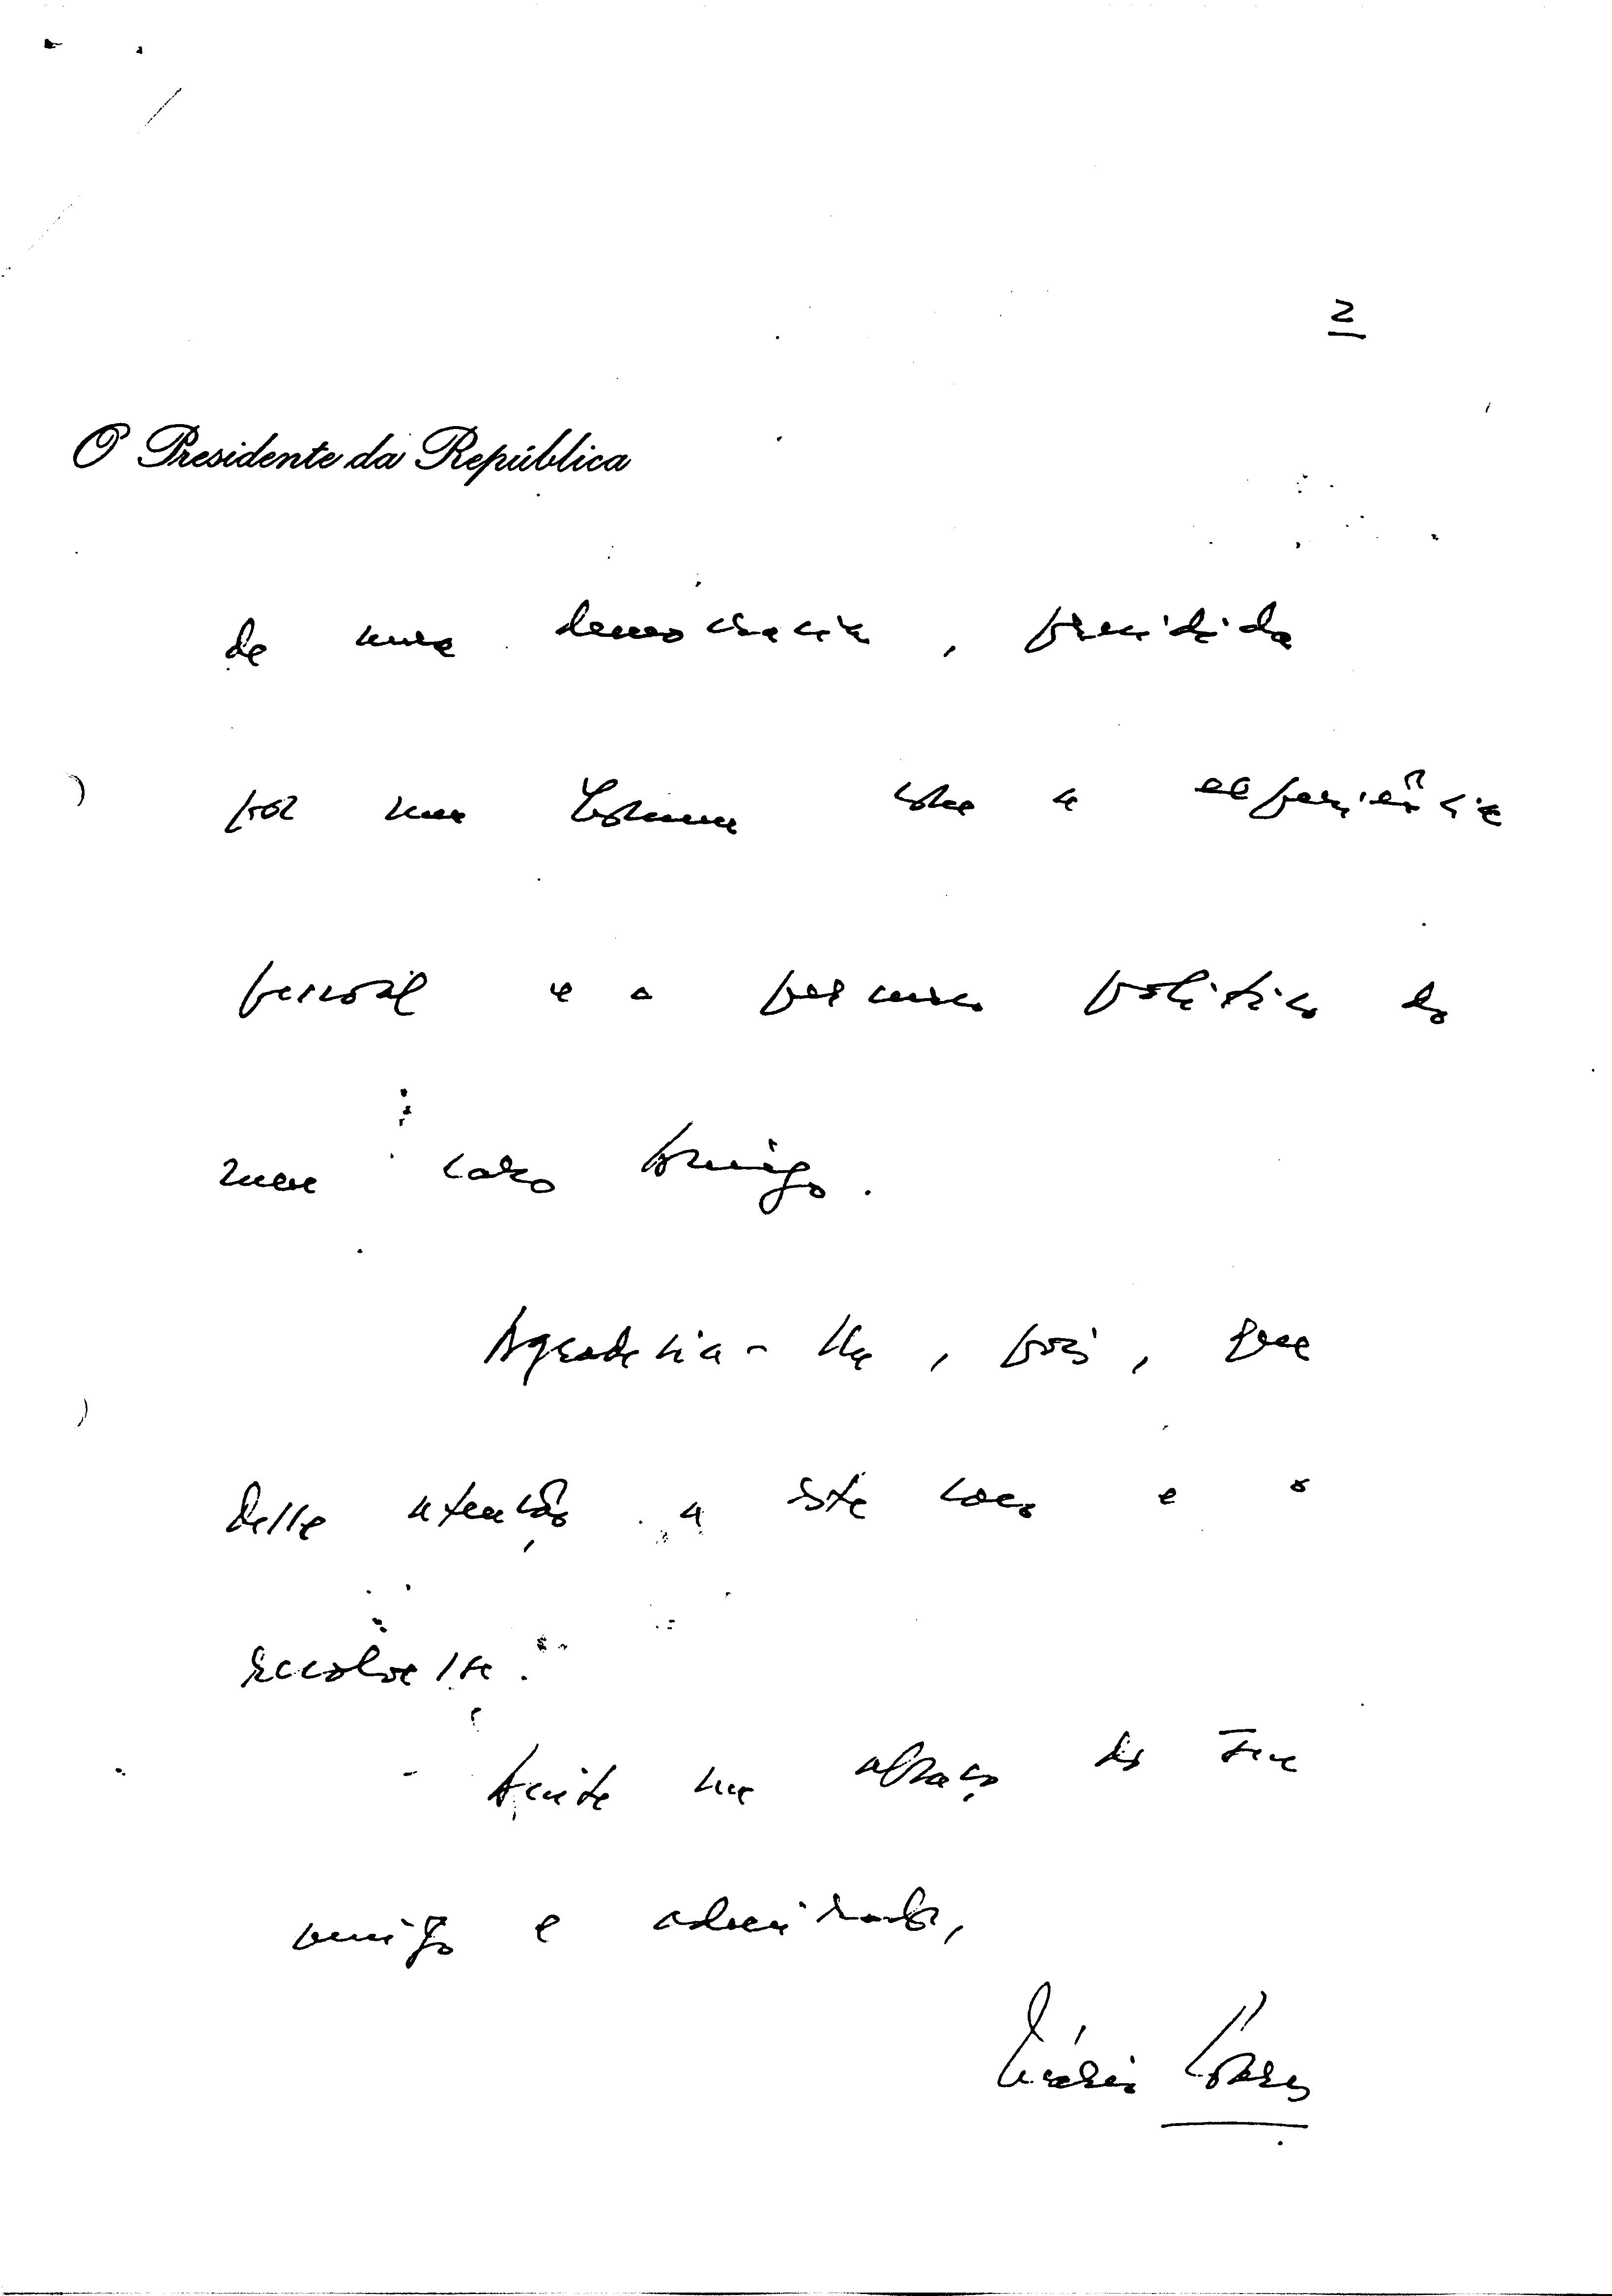 2
O Presidente da República
de uma democracia, presidida
por um homem com a experiência
pessoal e o percurso político do
meu caro amigo.
Agradecia-lhe, pois, que
desse atenção a este caso e o
resolvesse.
Aceite um abraço do seu
amigo e admirador,
Mário Soares